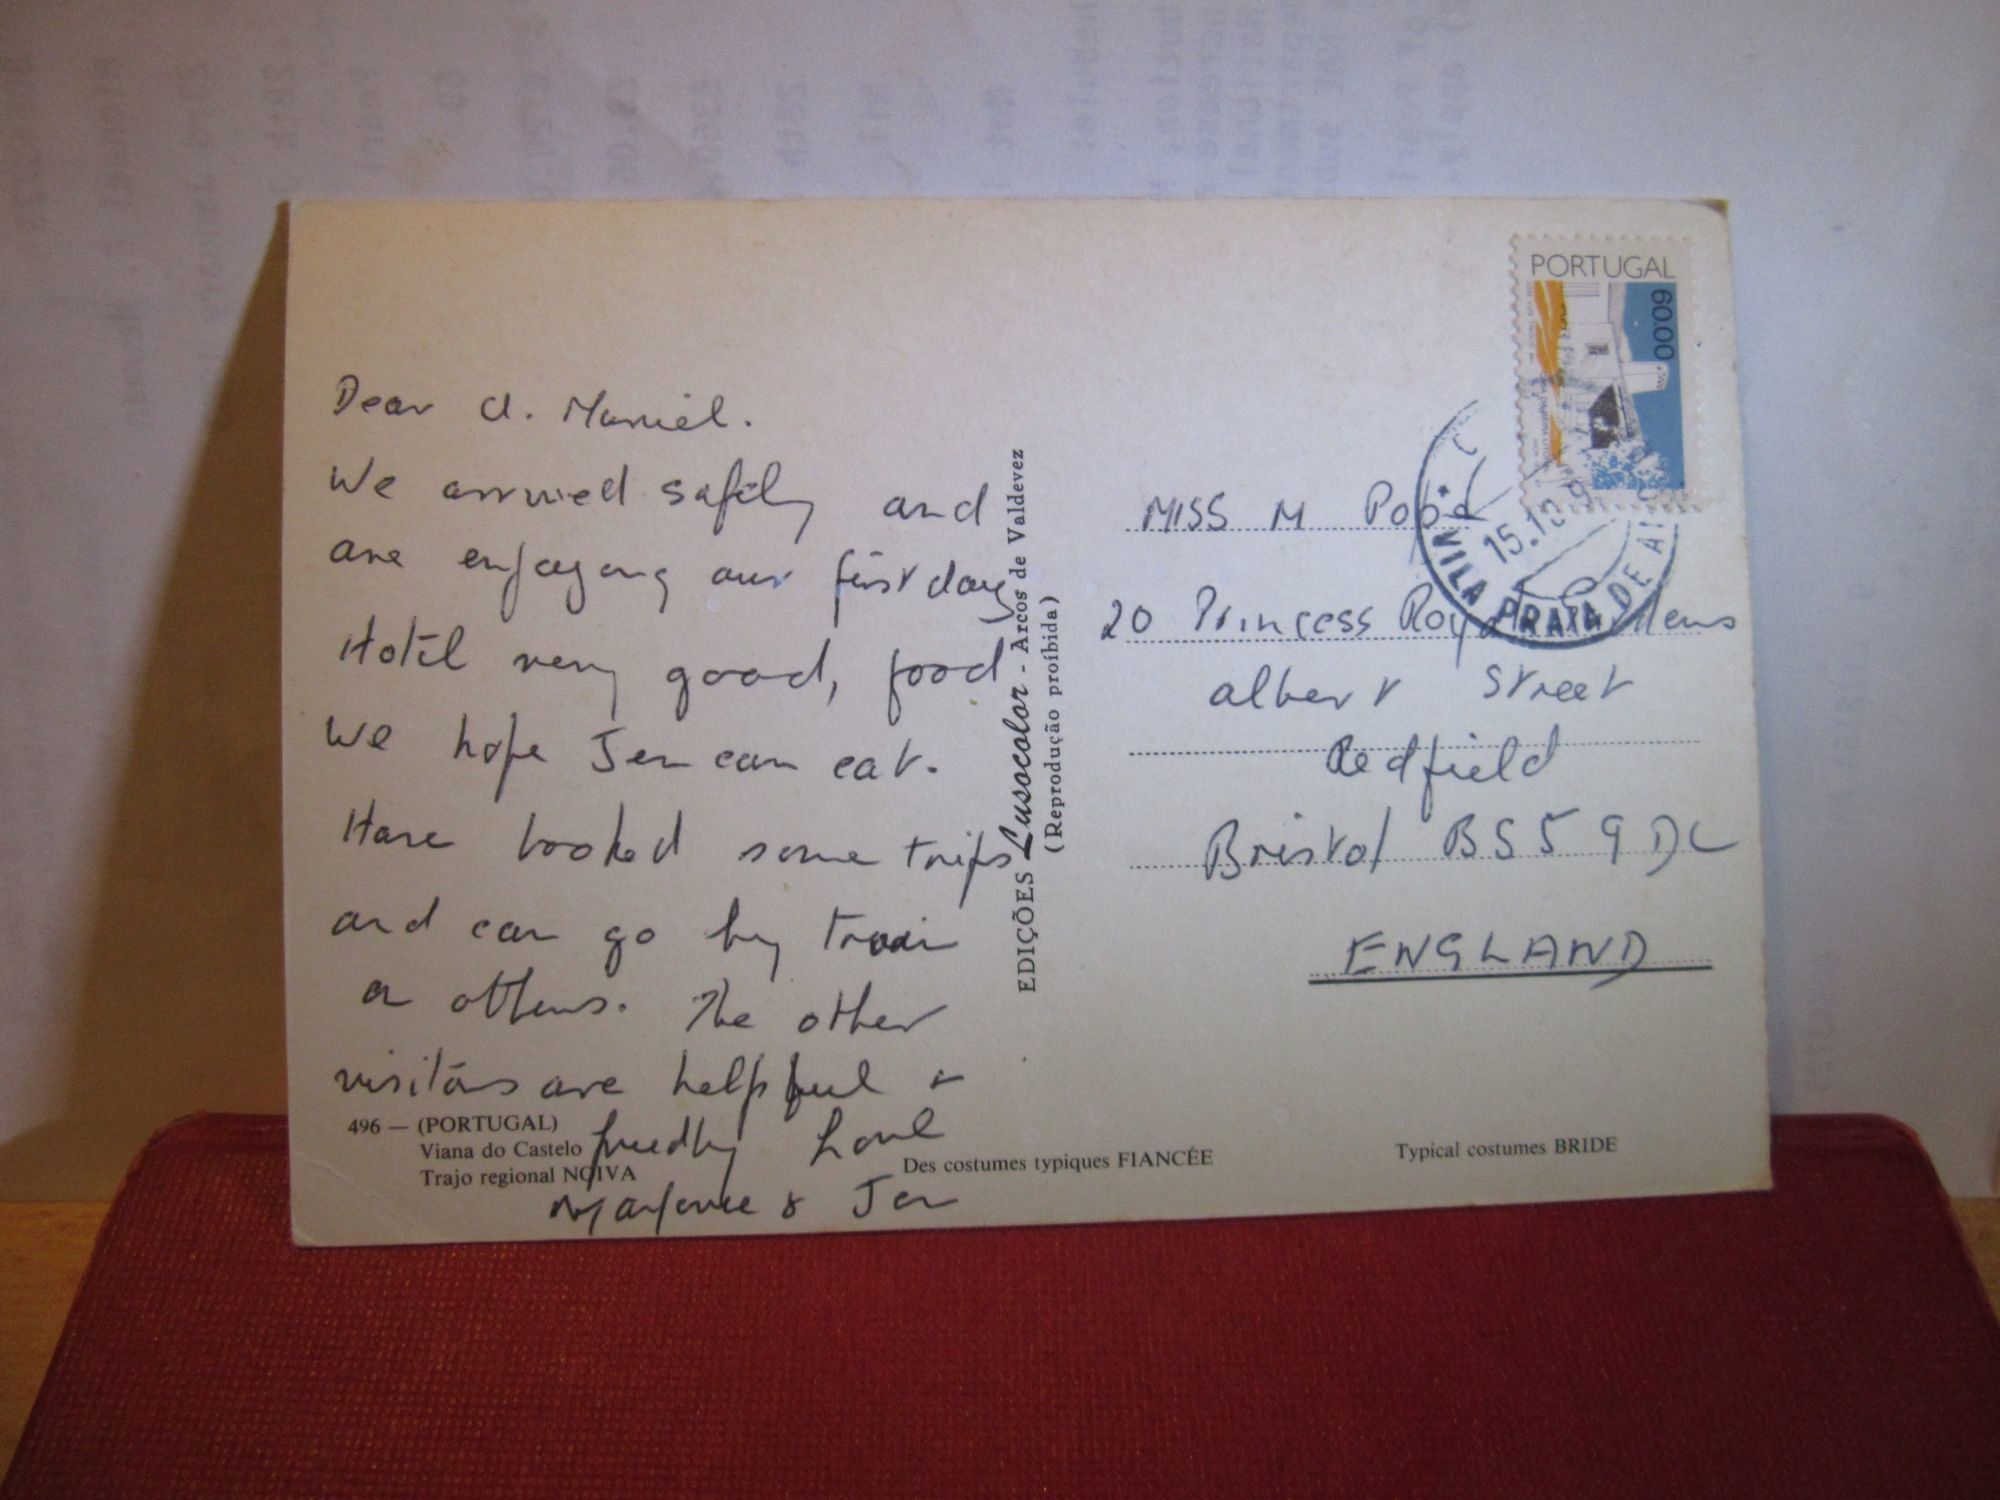 Dear A. Muriel.
We arrived safely and
are enjoying our first day
Hotel very good, food
we hope Jen can eat.
Have booked some trips
and can go by train
on others. The other
visitors are helpful &
friendly Love
Marjorie & Jen
496 — (PORTUGAL)
Viana do Castelo
Trajo regional NOIVA
Des costumes typiques FIANCÉE
Typical costumes BRIDE
EDIÇÕES Lusocolor - Arcos de Valdevez
(Reprodução proíbida)
PORTUGAL
60.00
15.10.9
VILA PRAIA DE
MISS M
20 Princess Royal
Albert Street
Redfield
Bristol BS5 9DL
ENGLAND